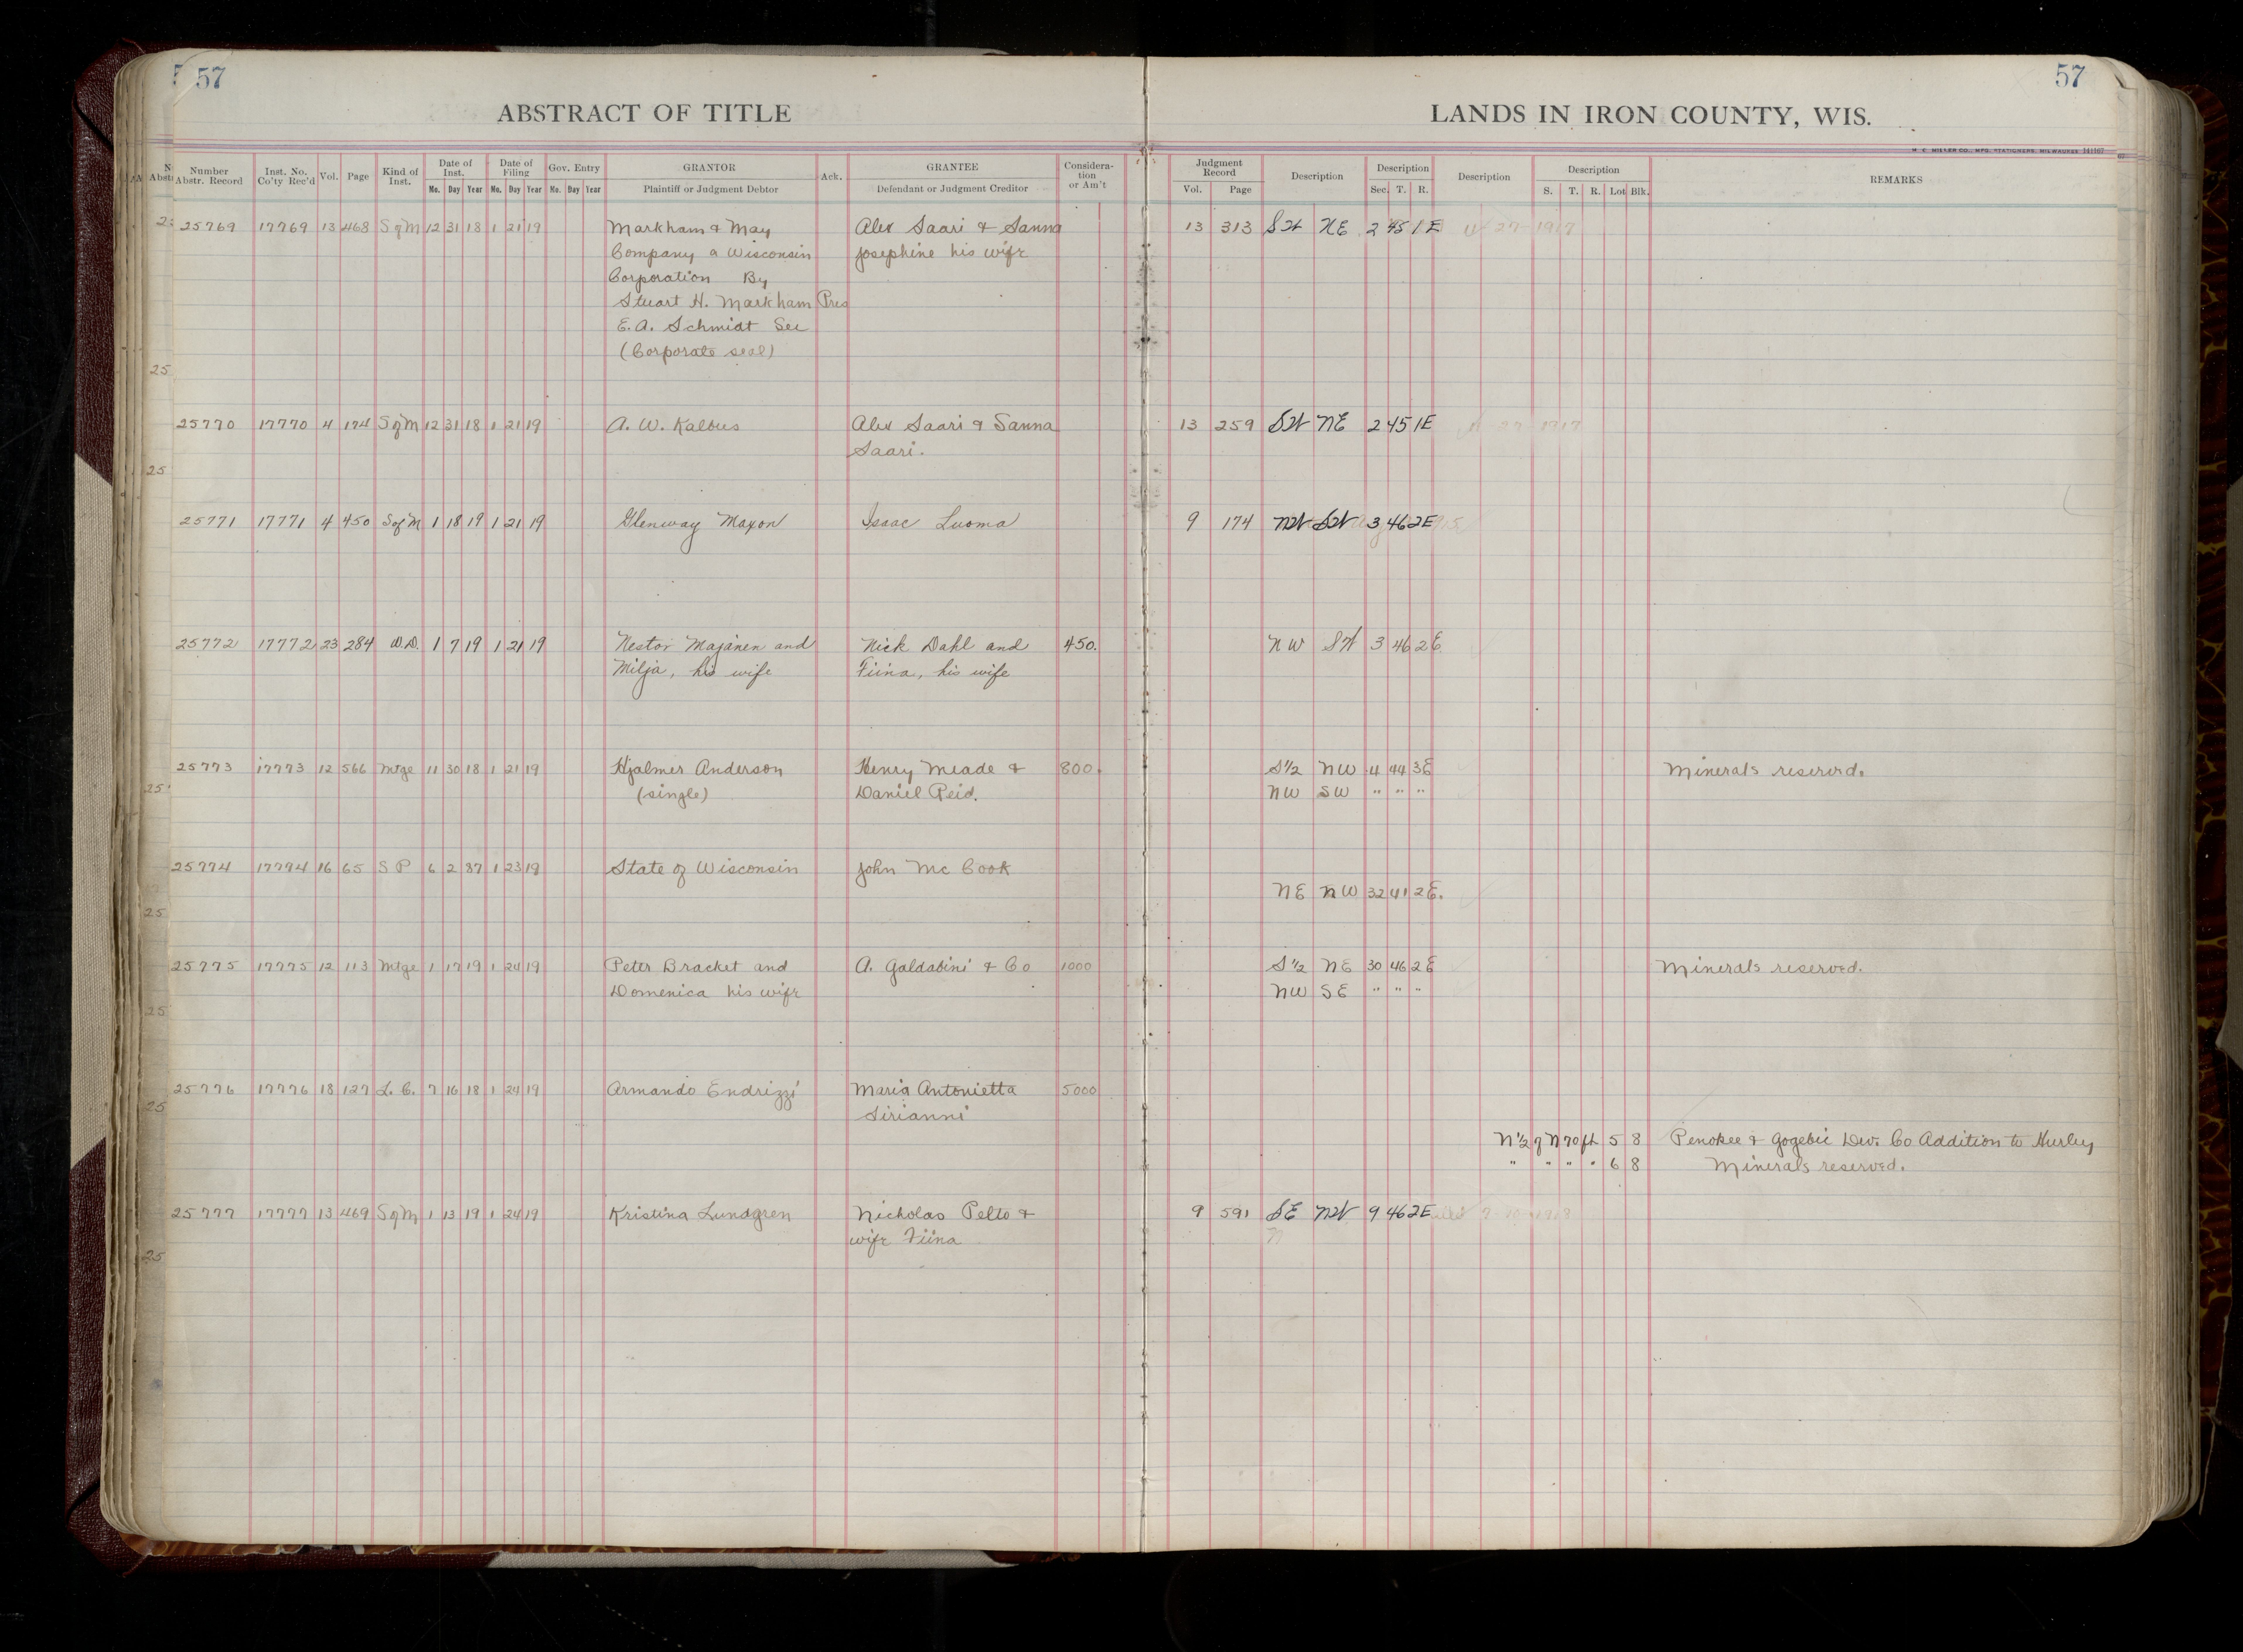 57
57
ABSTRACT OF TITLE
LANDS IN IRON COUNTY, WIS.
H. C. MILLER CO., MFG. STATIONERS, MILWAUKEE
Number Abstr. Record Inst. No. Co'ty Rec'd Vol. Page Kind of Inst. Date of Inst. Mo. Day Year Date of Filing Mo. Day Year Gov. Entry Mo. Day Year GRANTOR Plaintiff or Judgment Debtor Ack. GRANTEE Defendant or Judgment Creditor Considera- tion or Am't Judgment Record Vol. Page Description Description Sec. T. R. Description Description S. T. R. Lot Blk. REMARKS
25769 17769 13 468 S of M 12 31 18 1 21 19 Markham & May Alex Saari & Sanna 13 313 SW NE 2 45 1E 27 1917
Company a Wisconsin Josephine his wife
Corporation By
Stuart H. Markham Pres
E. A. Schmidt Sec
(Corporate seal)
25770 17770 4 174 S of M 12 31 18 1 21 19 A. W. Kalbus Alex Saari & Sanna 13 259 SW NE 2 45 1E
Saari.
25771 17771 4 450 S of M 1 18 19 1 21 19 Glenway Maxon Isaac Luoma 9 174 NW SW 3 46 2E
25772 17772 23 284 W.D. 1 7 19 1 21 19 Nestor Majanen and Nick Dahl and 450. NW SW 3 46 2E
Milja, his wife Fiina, his wife
25773 17773 12 566 Mtge 11 30 18 1 21 19 Hjalmer Anderson Henry Meade & 800. S½ NW 4 44 3E Minerals reserved.
(single) Daniel Reid. NW SW " " "
25774 17794 16 65 S P 6 2 87 1 23 19 State of Wisconsin John Mc Cook
NE NW 32 41 2E.
25775 17775 12 113 Mtge 1 17 19 1 24 19 Peter Bracket and A. Galdabini & Co 1000 S½ NE 30 46 2E Minerals reserved.
Domenica his wife NW SE " " "
25776 17776 18 127 L. C. 7 16 18 1 24 19 Armando Endrizzi Maria Antonietta 5000
Sirianni
N½ of N 70 ft 5 8 Penokee & Gogebic Dev. Co Addition to Hurley
" " " " 6 8 Minerals reserved.
25777 17777 13 469 S of M 1 13 19 1 24 19 Kristina Lundgren Nicholas Pelto & 9 591 SE NW 9 46 2E
wife Fiina